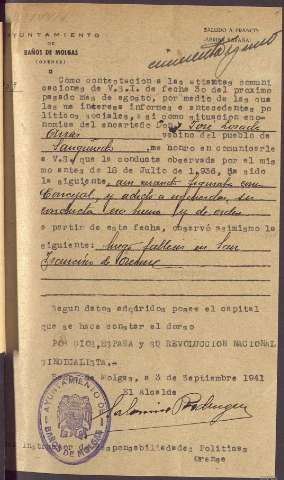 AYUNTAMIENTO
DE
BAÑOS DE MOLGAS
(ORENSE)
SALUDO A FRANCO:
¡ARRIBA ESPAÑA!
cincuenta y cuatro
Como contestación a las atentas comuni
caciones de V.S.I. de fecha 30 del proximo
pasado mes de agosto, por medio de las que
las me interesa informes e antecedentes po
líticos sociales, asi como situación eco-
nomica del encartado Don José Losada
vecino del pueblo de
me honro en comunicarle
V.S. que la conducta observada por el mis
mo antes de 18 de Julio de 1.936, ha sido
la siguiente, aun cuando figuraba como
Concejal, y adicto a izquierdas, su
conducta era buena y de orden
a partir de esta fecha, observó asimismo la
siguiente: luego falleció en San
Francisco de Orense
Segun datos adquridos posee el capital
que se hace constar el dorso
POR DIOS, ESPAÑA y SU REVOLUCION NACIONAL
SINDICALISTA.-
de Molgas, a 3 de Septiembre 1941
El Alcalde
AYUNTAMIENTO DE
BAÑOS DE MOLGAS
Instructor de Responsabilidades Politicas
Orense